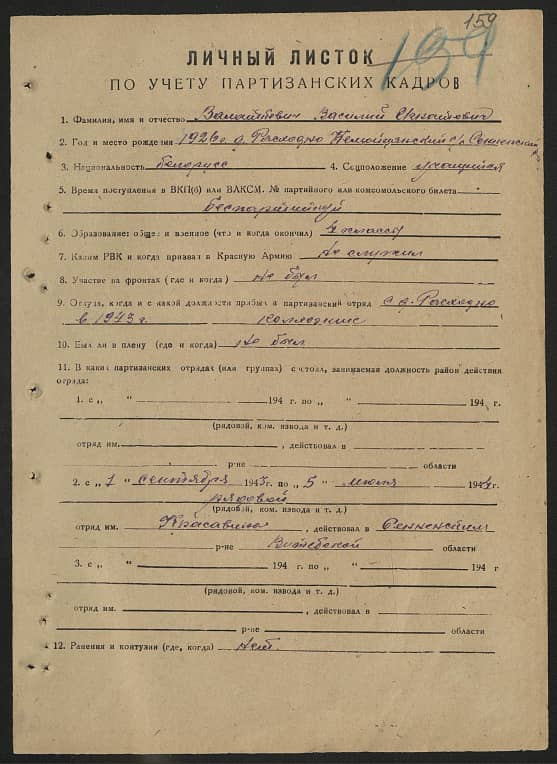 159
159
ЛИЧНЫЙ ЛИСТОК
ПО УЧЕТУ ПАРТИЗАНСКИХ КАДРОВ
1. Фамилия, имя и отчество Василий
2. Год и место рождения 1926 г. д. Расходно с/с Сенненский
3. Национальность белорусс 4. Соцположение учащийся
5. Время поступления в ВКП(б) или ВЛКСМ. № партийного или комсомольского билета
беспартийный
6. Образование: общее и военное (что и когда окончил) классы
7. Каким РВК и когда призван в Красную Армию не служил
8. Участие на фронтах (где и когда) не был
9. Откуда, когда и с какой должности прибыл в партизанский отряд с д. Расходно
в 1943 г. колхозник
10. Был ли в плену (где и когда) не был
11. В каких партизанских отрядах (или группах) состоял, занимаемая должность район действия
отряда:
1. с „ “ 194 г. по „ “ 194 г.
(рядовой, ком. взвода и т. д.)
отряд им. , действовал в
р-не области
2. с „ 1 “ сентября 1943 г. по „ 5 “ июля 1944 г.
рядовой
(рядовой, ком. взвода и т. д.)
отряд им. , действовал в Сенненском
р-не Витебской области
3. с „ “ 194 г. по „ “ 194 г
(рядовой, ком. взвода и т. д.)
отряд им. , действовал в
р-не области
12. Ранения и контузии (где, когда) нет